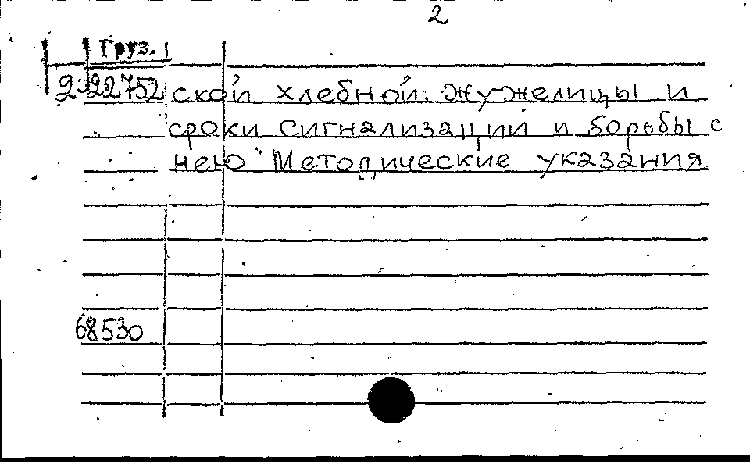 2
Груз.
2-22752 ской хлебной жужелицы и
сроки сигнализации и борьбы с
нею" Методические указания
68530